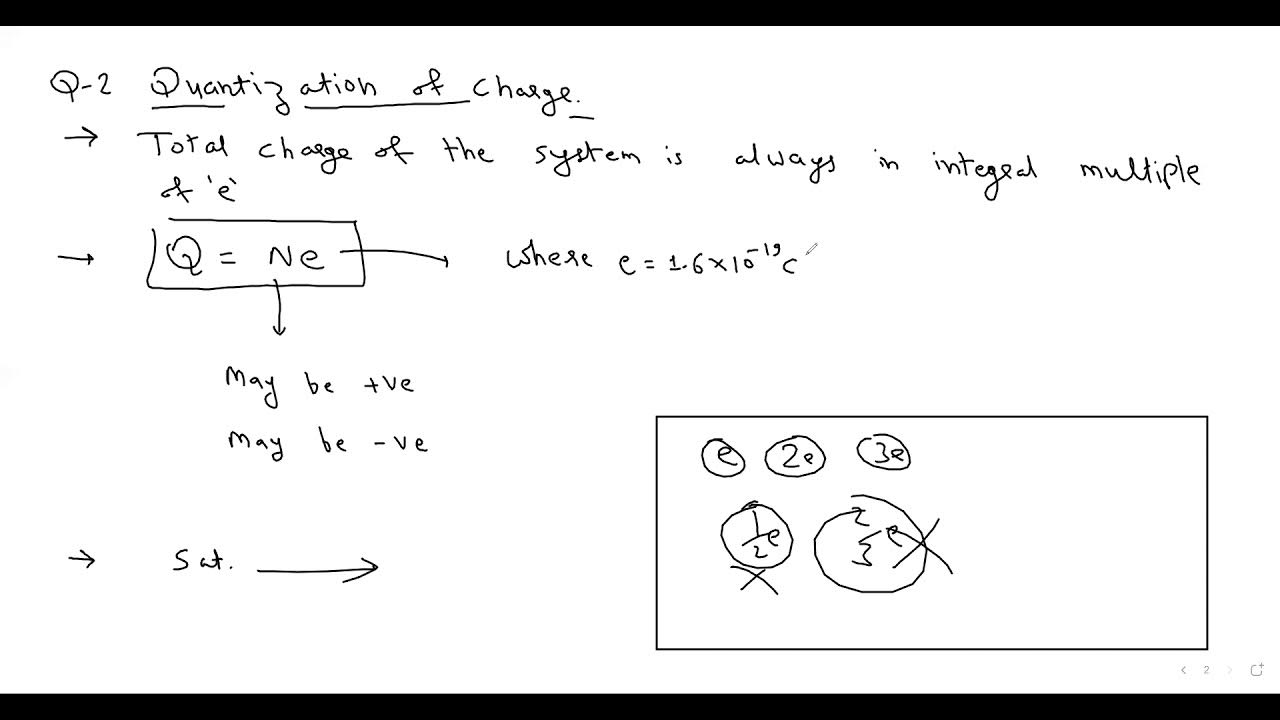 Q-2 Quantization of charge.
→ Total charge of the system is always in integral multiple
of 'e'
→ Q = Ne → where e = 1.6×10⁻¹⁹C
May be +ve
May be -ve
e 2e 3e
1/2 e 2/3 e
→ Sat. →
2